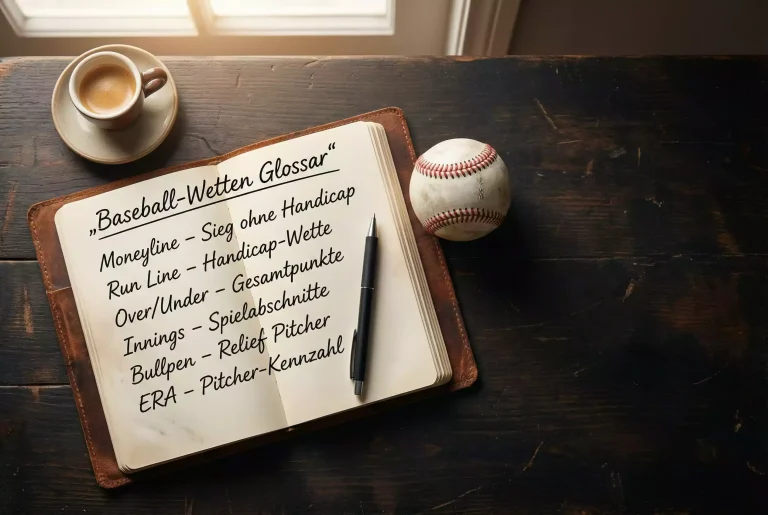 „Baseball-Wetten Glossar“
Moneyline – Sieg ohne Handicap
Run Line – Handicap-Wette
Over/Under – Gesamtpunkte
Innings – Spielabschnitte
Bullpen – Relief Pitcher
ERA – Pitcher-Kennzahl